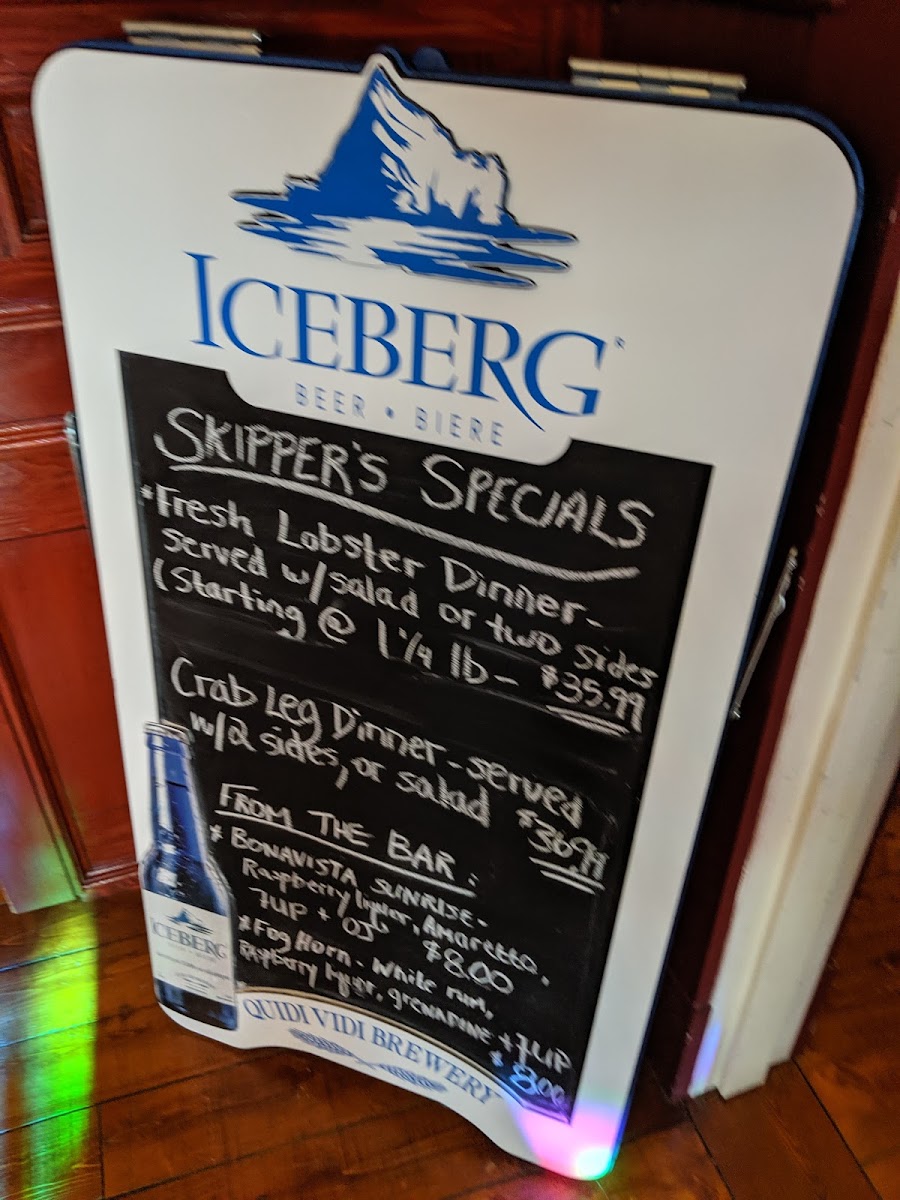 ICEBERG®
BEER • BIERE
SKIPPER'S SPECIALS
*Fresh Lobster Dinner-
served w/salad or two sides
(Starting @ 1 1/4 lb - $35.99
Crab Leg Dinner - served
w/2 sides, or salad
$36.99
FROM THE BAR:
* BONAVISTA SUNRISE-
Raspberry liquer, Amaretto,
7UP + OJ
$8.00
*Fog Horn - White rum,
Raspberry liquer, grenadine + 7UP
$8.00
ICEBERG
QUIDI VIDI BREWERY